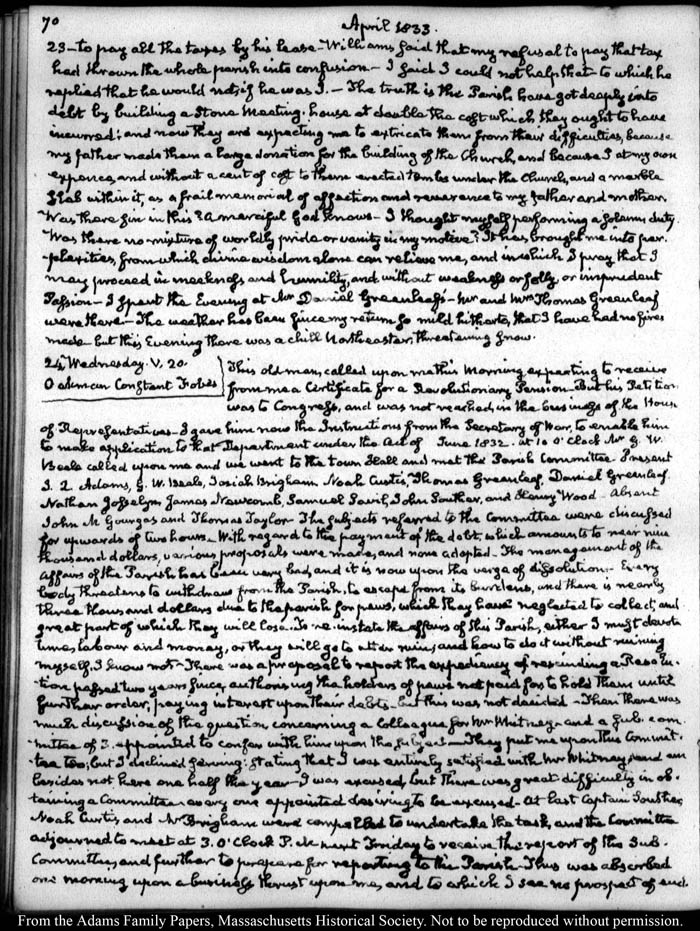 70
April 1833.
23 – to pay all the taxes by his lease – Williams said that my refusal to pay that tax
had thrown the whole parish into confusion – I said I could not help that – to which he
replied that he would not, if he was I. – The truth is the Parish have got deeply into
debt by building a Stone Meeting-house at double the cost which they ought to have
incurred: and now they are expecting me to extricate them from their difficulties, because
my father made them a large donation for the building of the Church, and because I at my own
expence, and without a cent of cost to them erected tombs under the Church, and a marble
slab within it, as a frail memorial of affection and reverence to my father and mother.
Was there sin in this? a merciful God knows – I thought myself performing a solemn duty.
Was there no mixture of worldly pride or vanity in my motive? It has brought me into per-
plexities, from which divine wisdom alone can relieve me, and in which I pray that I
may proceed in meekness and humility, and without weakness or folly, or imprudent
Passion – I spent the Evening at Mr Daniel Greenleaf's – Mr and Mrs Thomas Greenleaf
were there – The weather has been since my return so mild hitherto, that I have had no fires
made – but this Evening there was a chill Northeaster, threatening snow.
24 Wednesday. V. 20.
Oakman Constant Fobes
This old man, called upon me this Morning expecting to receive
from me a Certificate for a Revolutionary Pension – But his Petition
was to Congress, and was not reached, in the business of the House
of Representatives – I gave him now the Instructions from the Secretary of War, to enable him
to make application to that Department under the Act of June 1832. at 10 O'Clock Mr G. W.
Beale called upon me and we went to the town Hall and met the Parish Committee. Present
J. Q. Adams, G. W. Beale, Josiah Brigham Noah Curtis, Thomas Greenleaf, Daniel Greenleaf
Nathan Josselyn James Newcomb, Samuel Savil, John Souther, and Henry Wood – Absent
John M Gourgas and Thomas Taylor – The subjects referred to the Committee were discussed
for upwards of two hours – With regard to the payment of the debt, which amounts to near nine
thousand dollars, various proposals were made, and none adopted – The management of the
affairs of the Parish has been very bad, and it is now upon the verge of dissolution – Every
body threatens to withdraw from the Parish, to escape from its burdens, and there is nearly
three thousand dollars due to the parish for pews, which they have neglected to collect, and
great part of which they will lose. To re-instate the affairs of this Parish, either I must devote
time, labour and money, or they will go to utter ruin, and how to do it without ruining
myself, I know not – There was a proposal to report the expediency of rescinding a Resolu-
tion passed two years since, authorising the holders of pews not paid for, to hold them until
further order, paying interest upon their debts – but this was not decided – Then there was
much discussion of the question concerning a Colleague for Mr Whitney – and a sub-com-
mittee of 3. appointed to confer with him upon the subject – They put me upon this Commit-
tee too; but I declined serving: stating that I was entirely satisfied with Mr Whitney, and am
besides not here one half the year – I was excused, but there was great difficulty in ob-
taining a Committee – every one appointed desiring to be excused – At last Captain Souther
Noah Curtis, and Mr Brigham were compelled to undertake the task, and the Committee
adjourned to meet at 3. O'Clock P.M. next Friday to receive the report of the Sub-
Committee, and further to prepare for reporting to the Parish – Thus was absorbed
one morning upon a business thrust upon me, and to which I see no prospect of end.
From the Adams Family Papers, Massachusetts Historical Society. Not to be reproduced without permission.